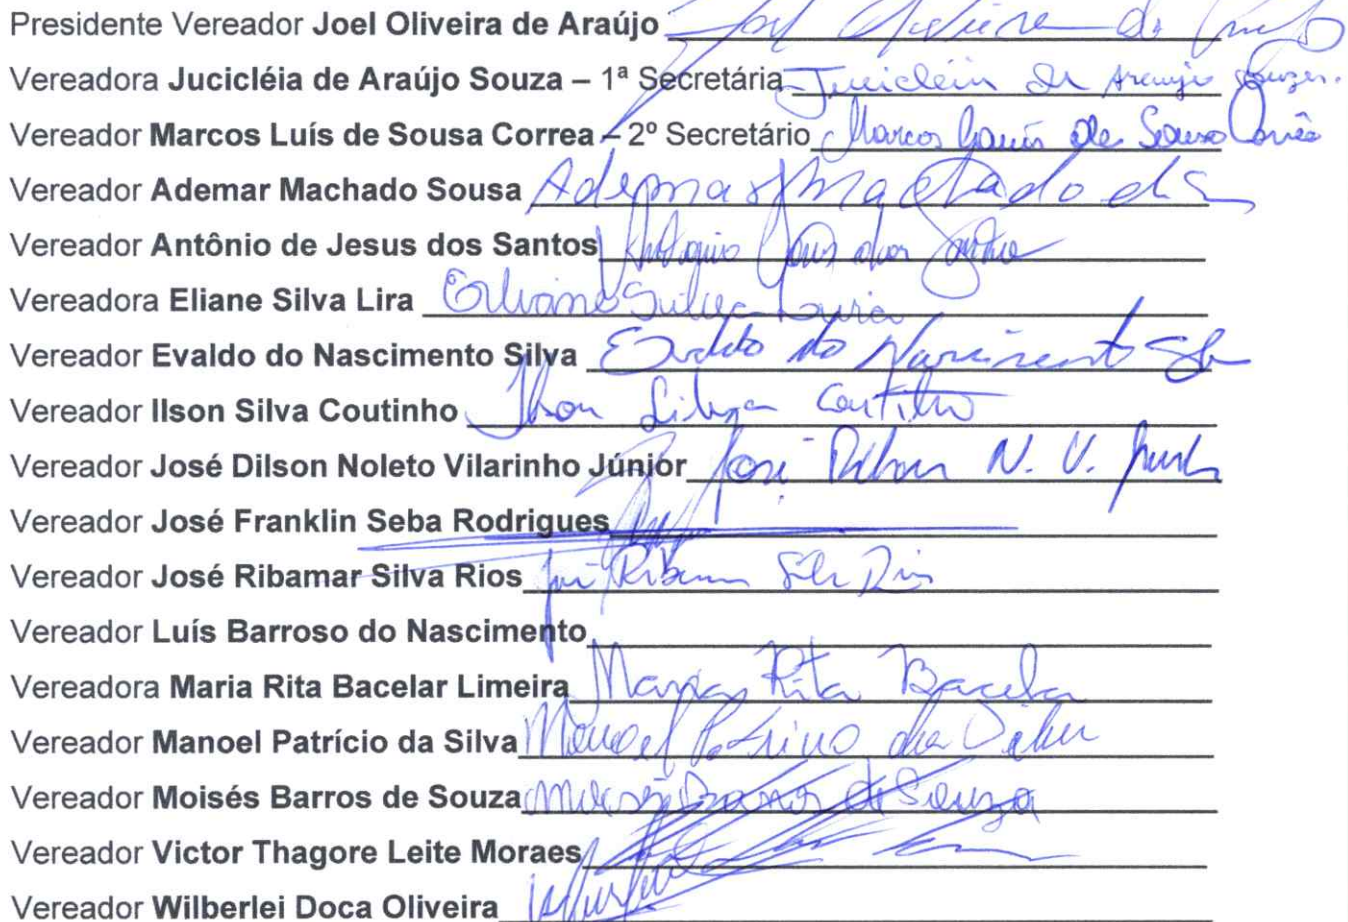 Presidente Vereador Joel Oliveira de Araújo
Vereadora Jucicléia de Araújo Souza – 1ª Secretária Jucicléia de Araujo Souza.
Vereador Marcos Luís de Sousa Correa – 2º Secretário Marcos Luis de Sousa Corrêa
Vereador Ademar Machado Sousa Ademar Machado de S
Vereador Antônio de Jesus dos Santos Antonio Jesus dos Santos
Vereadora Eliane Silva Lira Eliane Silva Lira
Vereador Evaldo do Nascimento Silva Evaldo do Nascimento
Vereador Ilson Silva Coutinho Ilson Silva Coutinho
Vereador José Dilson Noleto Vilarinho Júnior José Dilson N. V. Junior
Vereador José Franklin Seba Rodrigues
Vereador José Ribamar Silva Rios José Ribamar Silva Rios
Vereador Luís Barroso do Nascimento
Vereadora Maria Rita Bacelar Limeira Maria Rita Bacelar
Vereador Manoel Patrício da Silva Manoel Patricio da Silva
Vereador Moisés Barros de Souza Moises Barros de Souza
Vereador Victor Thagore Leite Moraes
Vereador Wilberlei Doca Oliveira